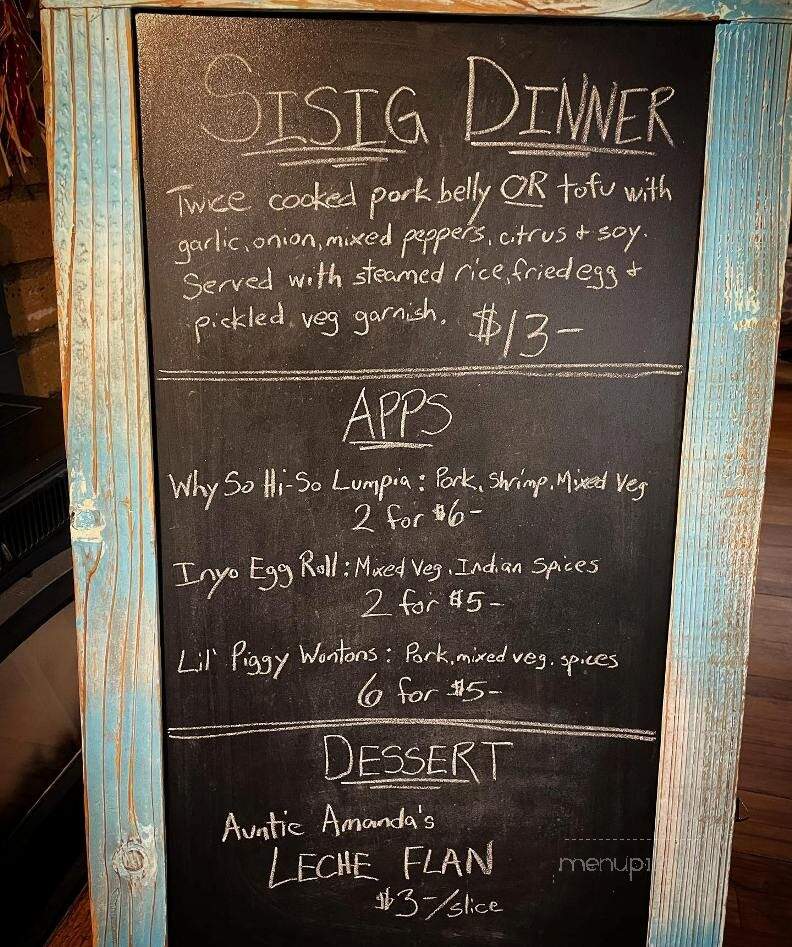 SISIG DINNER
Twice cooked pork belly OR tofu with
garlic, onion, mixed peppers, citrus + soy.
Served with steamed rice, fried egg +
pickled veg garnish. $13-
APPS
Why So Hi-So Lumpia: Pork, Shrimp, Mixed Veg
2 for $6-
Inyo Egg Roll: Mixed Veg, Indian Spices
2 for $5-
Lil' Piggy Wontons: Pork, mixed veg, spices
6 for $5-
DESSERT
Auntie Amanda's
LECHE FLAN
$3-/slice